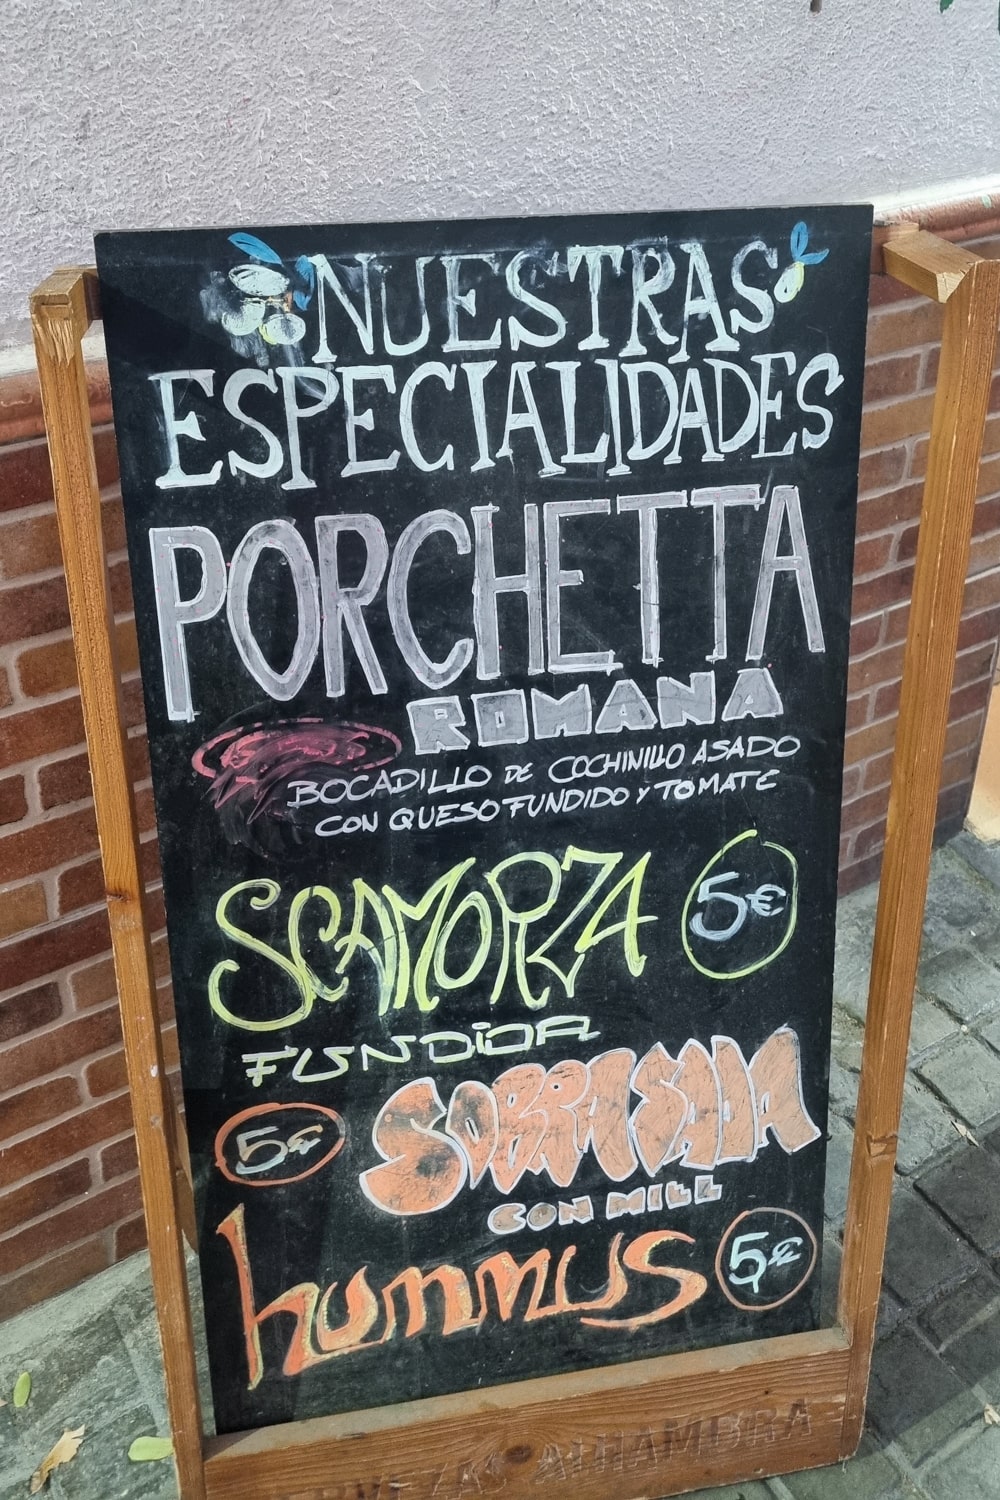 NUESTRAS
ESPECIALIDADES
PORCHETTA
ROMANA
BOCADILLO DE COCHINILLO ASADO
CON QUESO FUNDIDO Y TOMATE
SCAMORZA 5€
FUNDIDA
5€ SOBRASADA
CON MIEL
hummus 5€
CERVEZAS ALHAMBRA